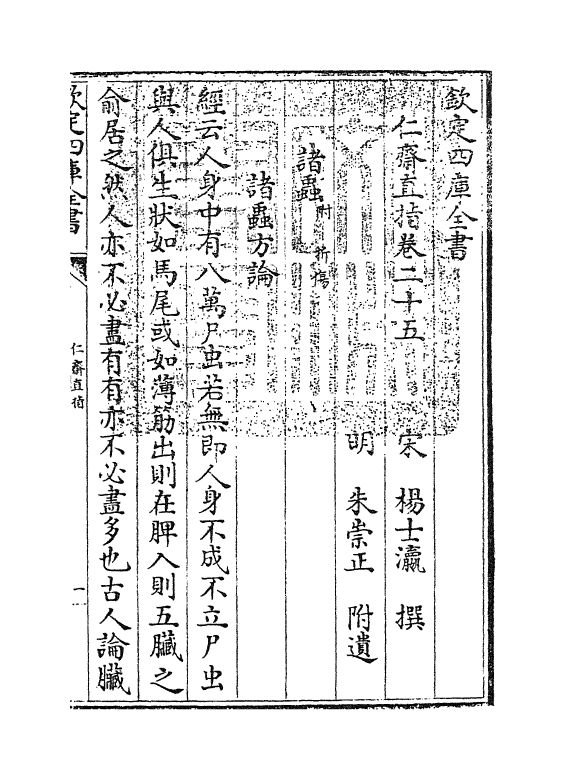 欽定四庫全書
仁齋直指卷二十五
宋 楊士瀛 撰
明 朱崇正 附遺
諸蟲附折傷
諸蟲方論
經云人身中有八萬尸虫若無即人身不成不立尸虫
與人俱生狀如馬尾或如薄筋出則在脾入則五臟之
俞居之然人亦不必盡有有亦不必盡多也古人論臟
欽定四庫全書
仁齋直指
一